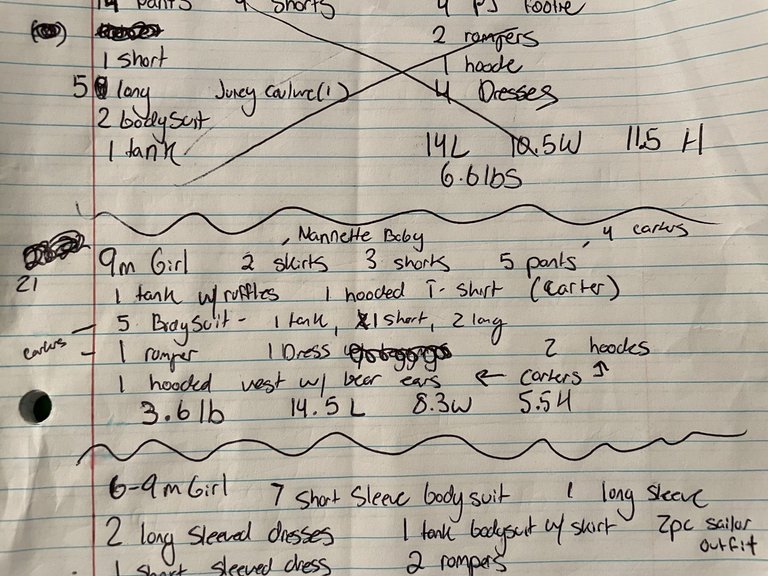 14 pants 9 shorts 4 PJ footie
2 rompers
1 short 1 hoode
5 long Juicy Couture (1) 4 Dresses
2 bodysuit
1 tank 14L 10.5W 11.5 H
6.6lbs
Nannette Baby 4 carters
9m Girl 2 skirts 3 shorts 5 pants
21
1 tank w/ ruffles 1 hooded T-shirt (Carter)
5 Bodysuit - 1 tank, 1 short, 2 long
carters 1 romper 1 Dress 2 hoodes
1 hooded vest w/ bear ears ← carters ↑
3.6lb 14.5 L 8.3W 5.5H
6-9m Girl 7 short sleeve bodysuit 1 long sleeve
2 long sleeved dresses 1 tank bodysuit w/ skirt 2pc sailor
outfit
1 short sleeved dress 2 rompers